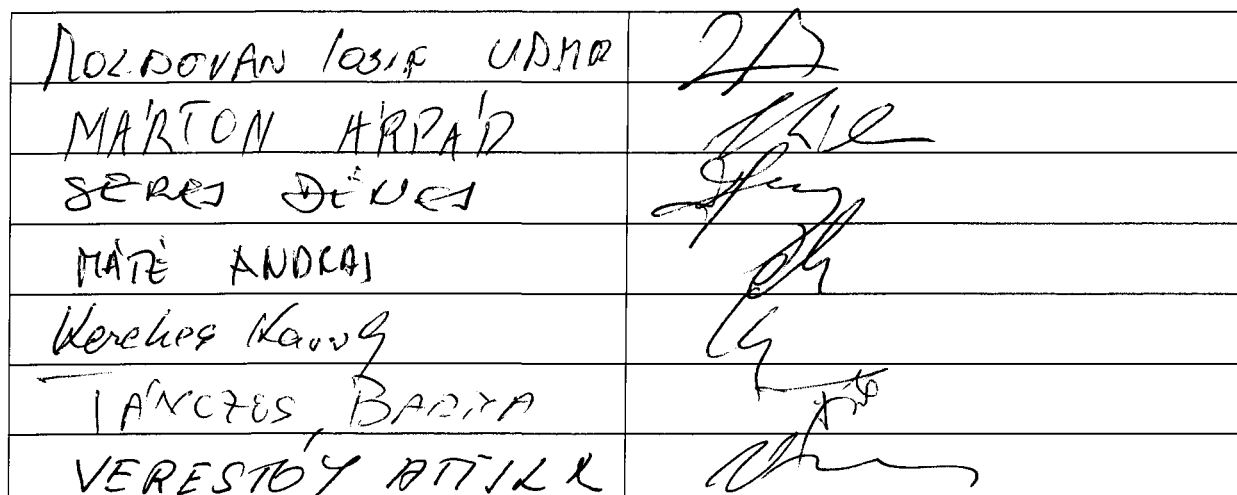 MOLDOVAN IOSIF UDMR
MÁRTON ÁRPÁD
SERES DÉNES
MÁTÉ ANDRAS
Kerekes Károly
TÁNCZOS BARNA
VERESTÓY ATTILA